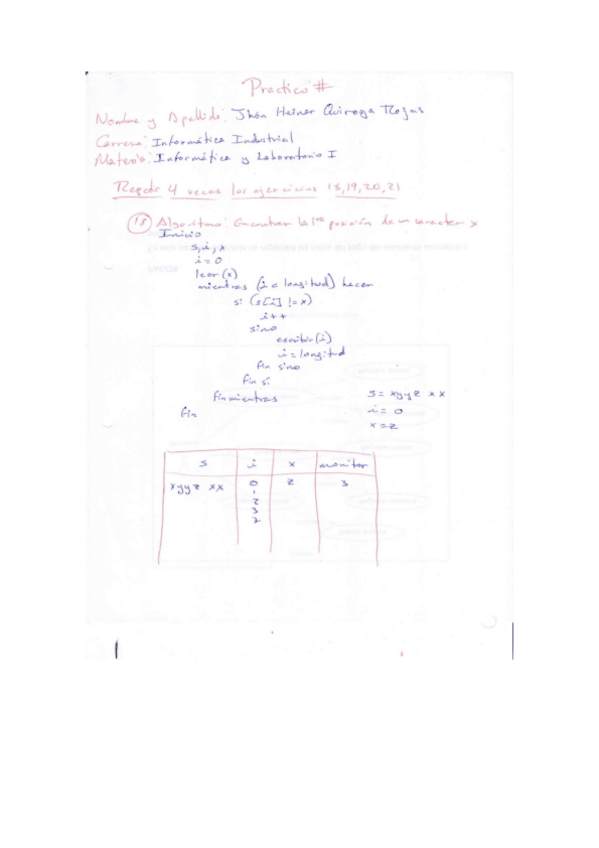 Practico #
Nombre y Apellido: Jhon Heiner Quiroga Rojas
Carrera: Informática Industrial
Materia: Informática y Laboratorio I
Repetir 4 veces los ejercicios 18,19,20,21
18 Algoritmo: Encontrar la 1ra posición de un caracter x
Inicio
s, i, x
i = 0
leer (x)
mientras (i < longitud) hacer
si (s[i] != x)
i++
sino
escribir (i)
i = longitud
fin sino
fin si
fin mientras
fin
s = xyyz xx
i = 0
x = z
s i x monitor
xyyz xx 0 z 3
1
2
3
7